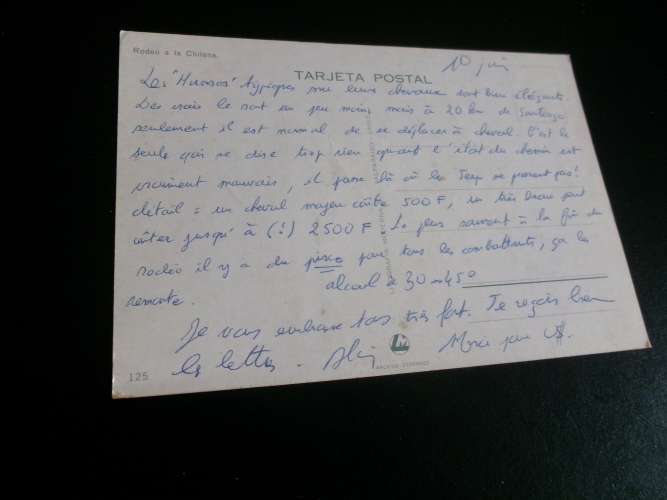 Rodeo a la Chilena.
TARJETA POSTAL
10 juin
Les "Huasos" typiques sur leurs chevaux sont bien élégants.
Des vrais le sont un peu moins mais à 20 km de Santiago
seulement il est normal de se déplacer à cheval. C'est le
seule qui ne dise trop rien quand l'état du chemin est
vraiment mauvais, il passe là où les Jeep ne passent pas!
détail : un cheval moyen coûte 500 F, un très beau peut
coûter jusqu'à (!) 2500 F. Le plus souvent à la fin du
rodéo il y a du pisco pour tous les combattants, ça les
alcool de 30 à 45°
remonte.
Je vous embrasse tous très fort. Je reçois bien
les lettres. Merci pour
125